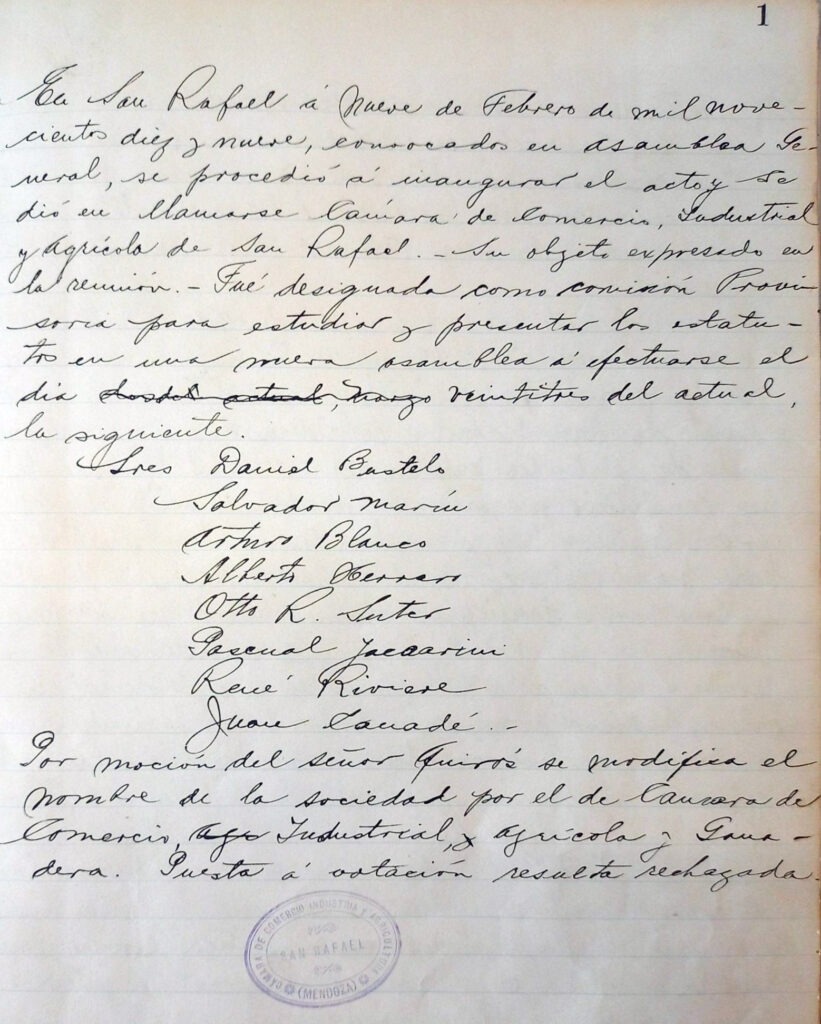 1
En San Rafael á Nueve de Febrero de mil nove-
cientos diez y nueve, convocados en asamblea Ge-
neral, se procedió á inaugurar el acto y se
dió en llamarse Cámara de Comercio, Industrial
y Agrícola de San Rafael. - Su objeto expresado en
la reunión. - Fué designada como comisión Provi
soria para estudiar y presentar los estatu-
tos en una nueva asamblea á efectuarse el
dia dos del actual, marzo veintitres del actual,
la siguiente.
Sres Daniel Bustelo
Salvador Marín
Arturo Blanco
Alberto Herrero
Otto R. Suter
Pascual Jaccarini
René Riviere
Juan Canadé. -
Por moción del señor Quirós se modifica el
nombre de la sociedad por el de Camara de
Comercio, Agr Industrial, y Agrícola y Gana-
dera. Puesta á votación resulta rechazada.
CÁMARA DE COMERCIO INDUSTRIA Y AGRICULTURA
SAN RAFAEL
(MENDOZA)